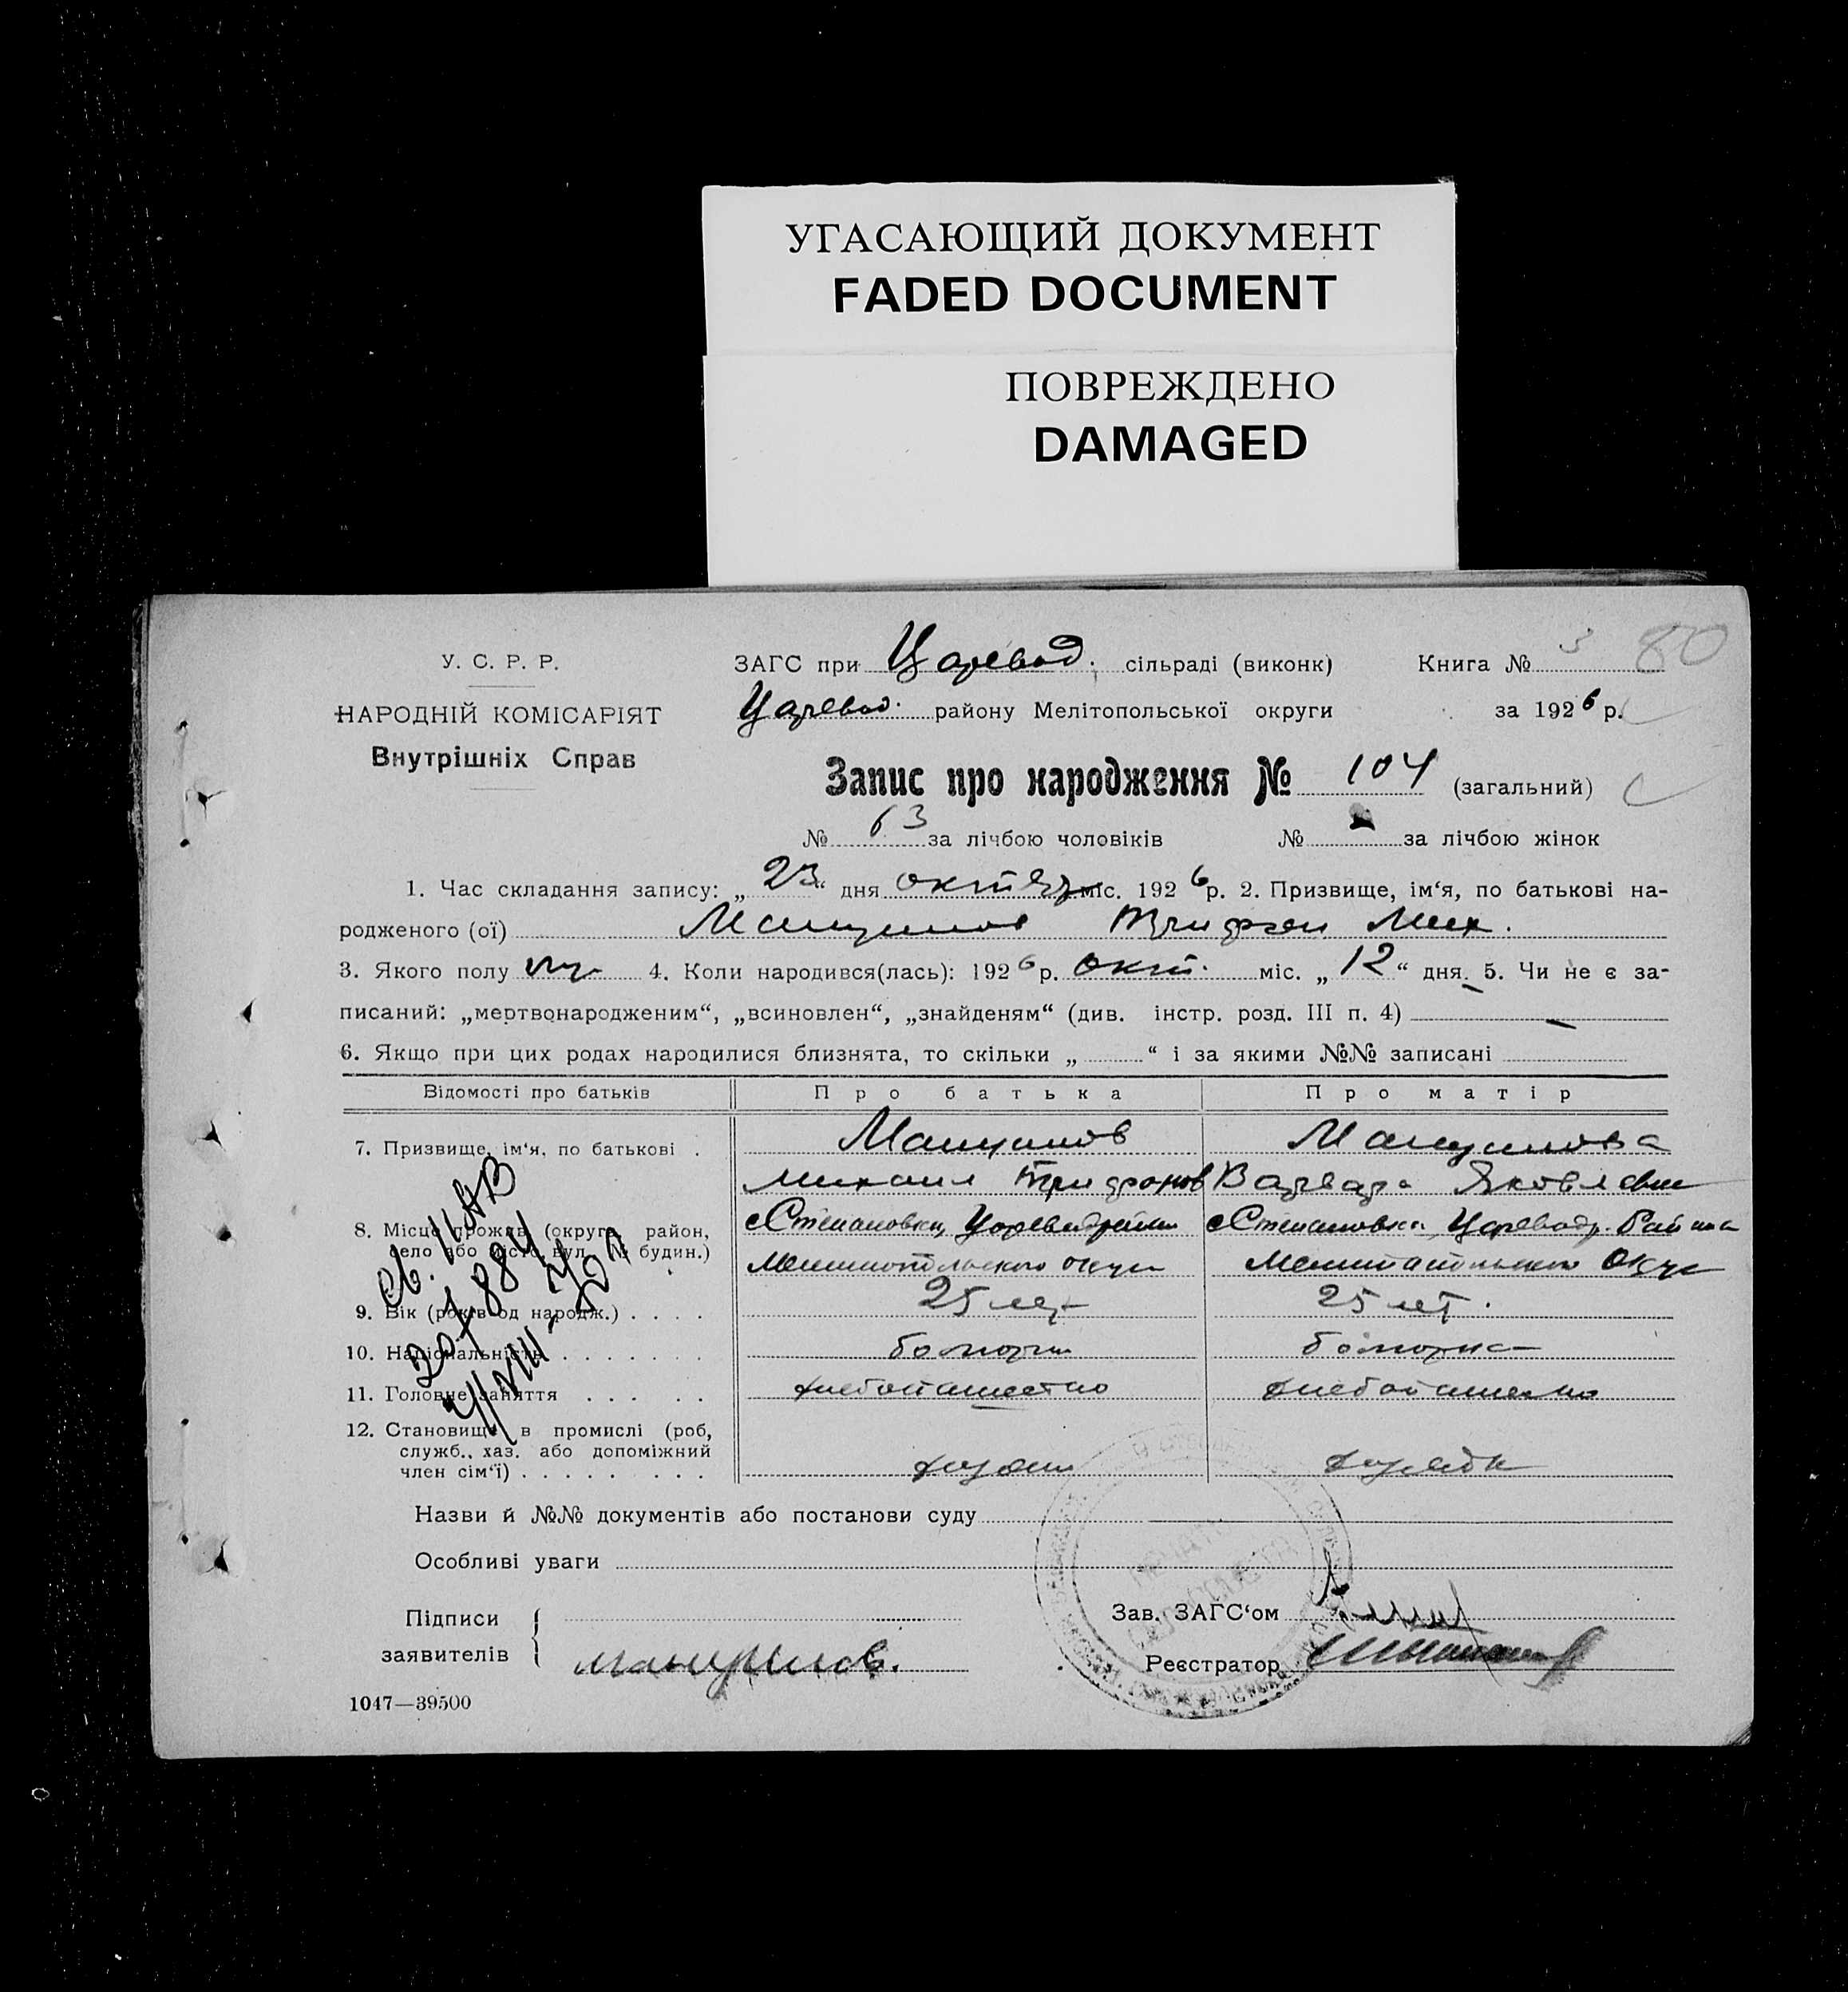 УГАСАЮЩИЙ ДОКУМЕНТ
FADED DOCUMENT
ПОВРЕЖДЕНО
DAMAGED
80
У. С. Р. Р.
ЗАГС при Царевод. сільраді (виконк) Книга № 3
НАРОДНІЙ КОМІСАРІЯТ
Царевод. району Мелітопольської округи за 1926 р.
Внутрішніх Справ
Запис про народження № 104 (загальний)
№ 63 за лічбою чоловіків № за лічбою жінок
1. Час складання запису: „23“ дня октяб міс. 1926 р. 2. Призвище, ім‘я, по батькові на-
родженого (ої) Трифон Мих.
3. Якого полу муж 4. Коли народився(лась): 1926 р. окт. міс. „12“ дня. 5. Чи не є за-
писаний: „мертвонародженим“, „всиновлен“, „знайденям“ (див. інстр. розд. III п. 4) —
6. Якщо при цих родах народилися близнята, то скільки „ “ і за якими №№ записані
Відомості про батьків Про батька Про матір
7. Призвище, ім‘я, по батькові .
Михаил Трифонов Варвара Яковлевна
8. Місце прожив. (округа, район, село або місто, вул. № будин.)
с Степановки, с Степановка Царевод. Района
Мелитопольского Округ Мелитопольского Округ
9. Вік (років од народж.) . . . . 25 лет 25 лет.
10. Національність . . . . . . . болгарин болгарка
11. Головне заняття . . . . . хлебопашество хлебопашество
12. Становище в промислі (роб,
служб., хаз. або допоміжний
член сім‘ї) . . . . . . . . хозяин
Назви й №№ документів або постанови суду
Особливі уваги
Підписи
заявителів
Зав. ЗАГС‘ом
Реєстратор
1047—39500